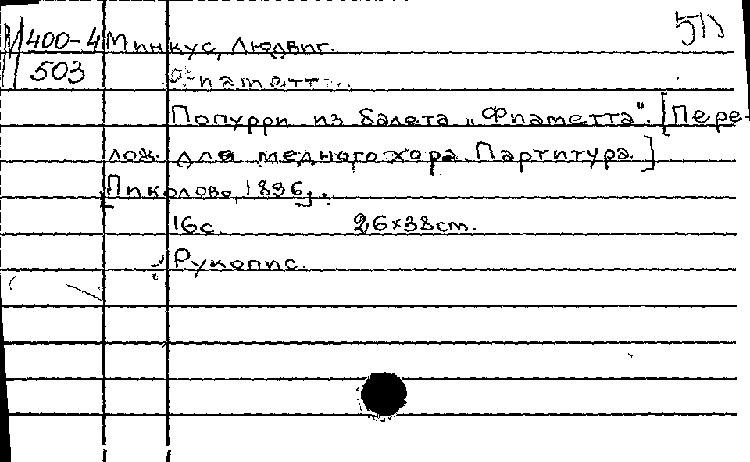 511
400-4 Минкус, Людвиг.
503 Фиаметта.
Попурри из балета „Фиаметта". [Пере-
лож. для медного хора. Партитура.]
1896].
16с. 26х38см.
Рукопис.